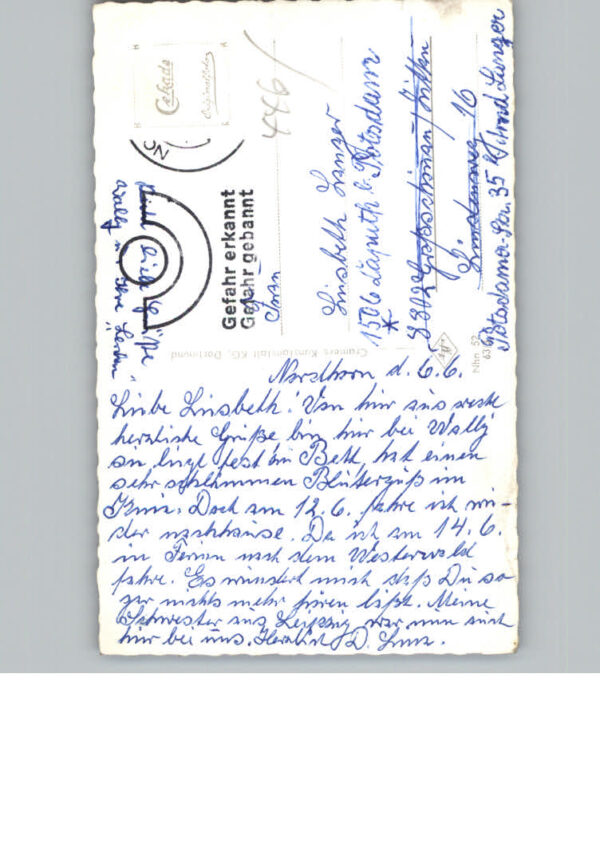 Nordhorn d. 6.6.
Liebe Lisbeth! Von hier aus recht
herzliche Grüße bin hier bei Wally
sie liegt fest im Bett, hat einen
sehr schlimmen Bluterguß im
Knie. Doch am 12.6. fahre ich wie-
der nachhause. Da ich am 14.6.
in Ferien nach dem Westerwald
fahre. Es wundert mich daß Du so
gar nichts mehr hören läßt. Meine
Schwester aus Leipzig war nun auch
hier bei uns. Herzlich D.
Auch viele Grüße
Wally u.
Cekade
Originalfoto
446/
Gefahr erkannt
Gefahr gebannt
Frau
Lisbeth Langer
1506 Caputh b. Potsdam
8802 Großschönau
16
Potsdamer-Str. 35
Cramers Kunstanstalt KG, Dortmund
Nhn 52